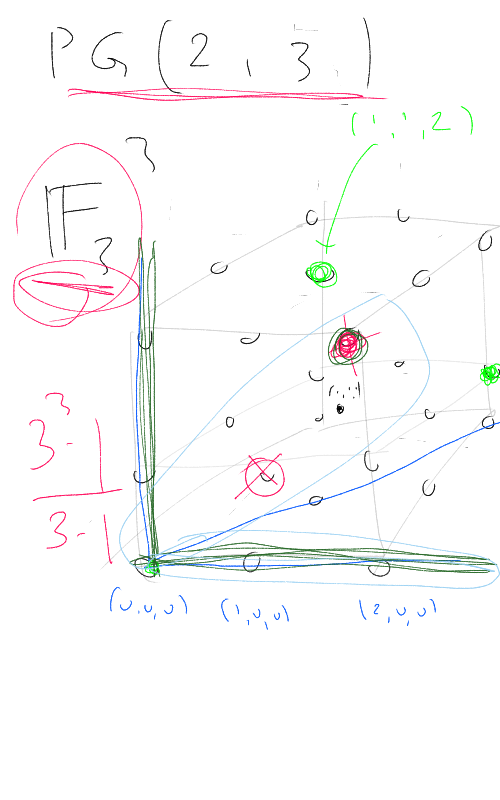 PG(2,3)
(1,1,2)
F 3 3
(1,1,1)
3^3-1
3-1
(0,0,0) (1,0,0) (2,0,0)